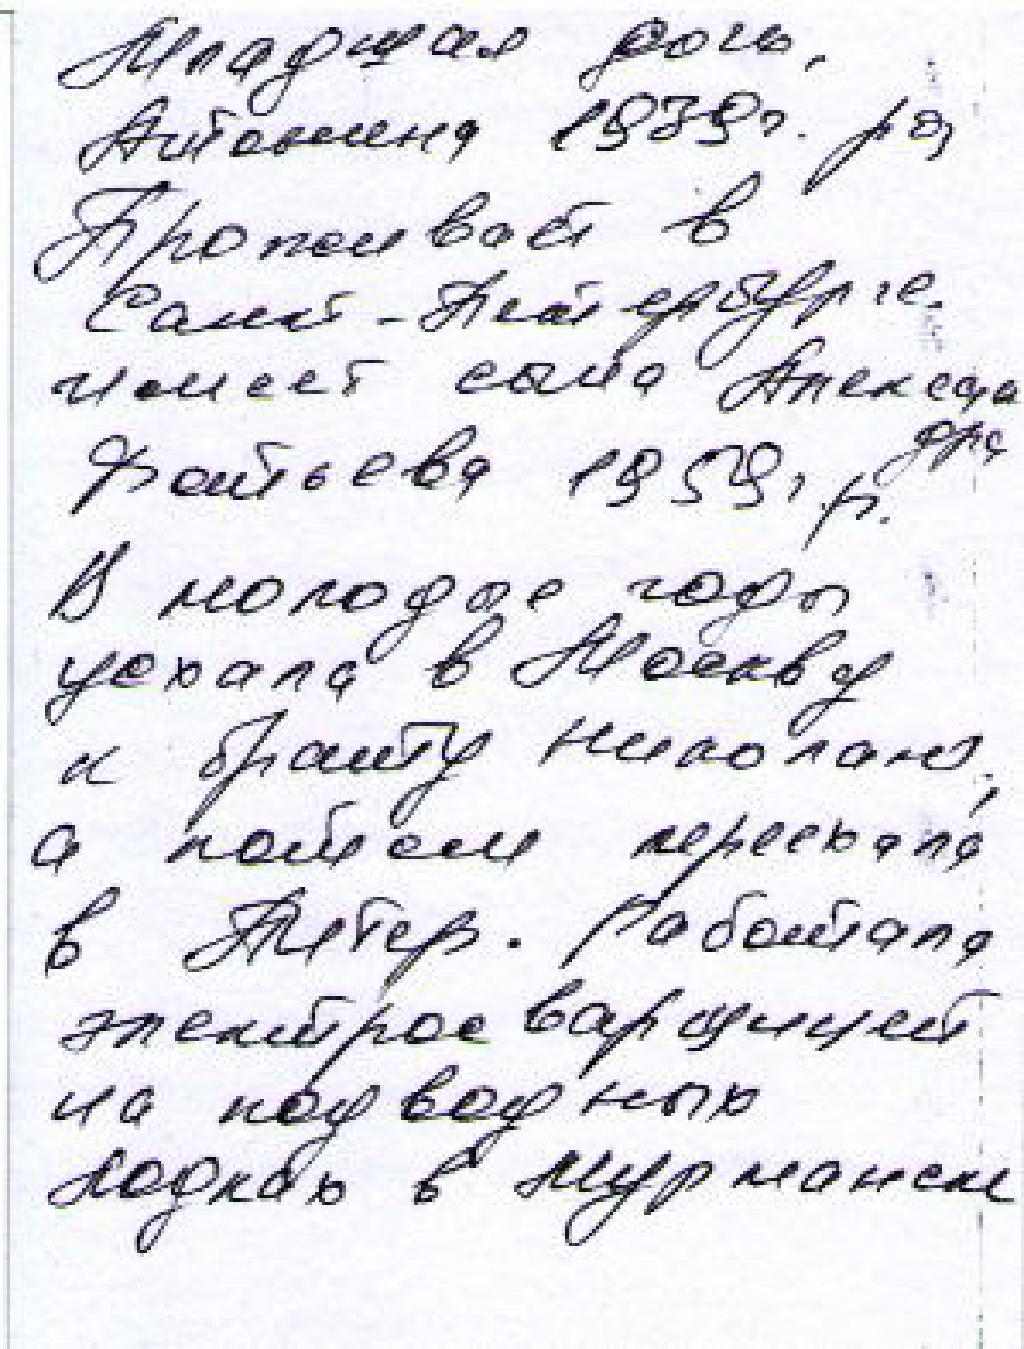 Младшая дочь,
Антонина 1939г. р-я,
Проживает в
Санкт-Петербурге.
имеет сына Алексан
дра
Фатьева 1959г.р.
В молодые годы
уехала в Москву
к брату Николаю,
а потом переехала
в Питер. Работала
электросварщицей
на подводных
лодках в Мурманске